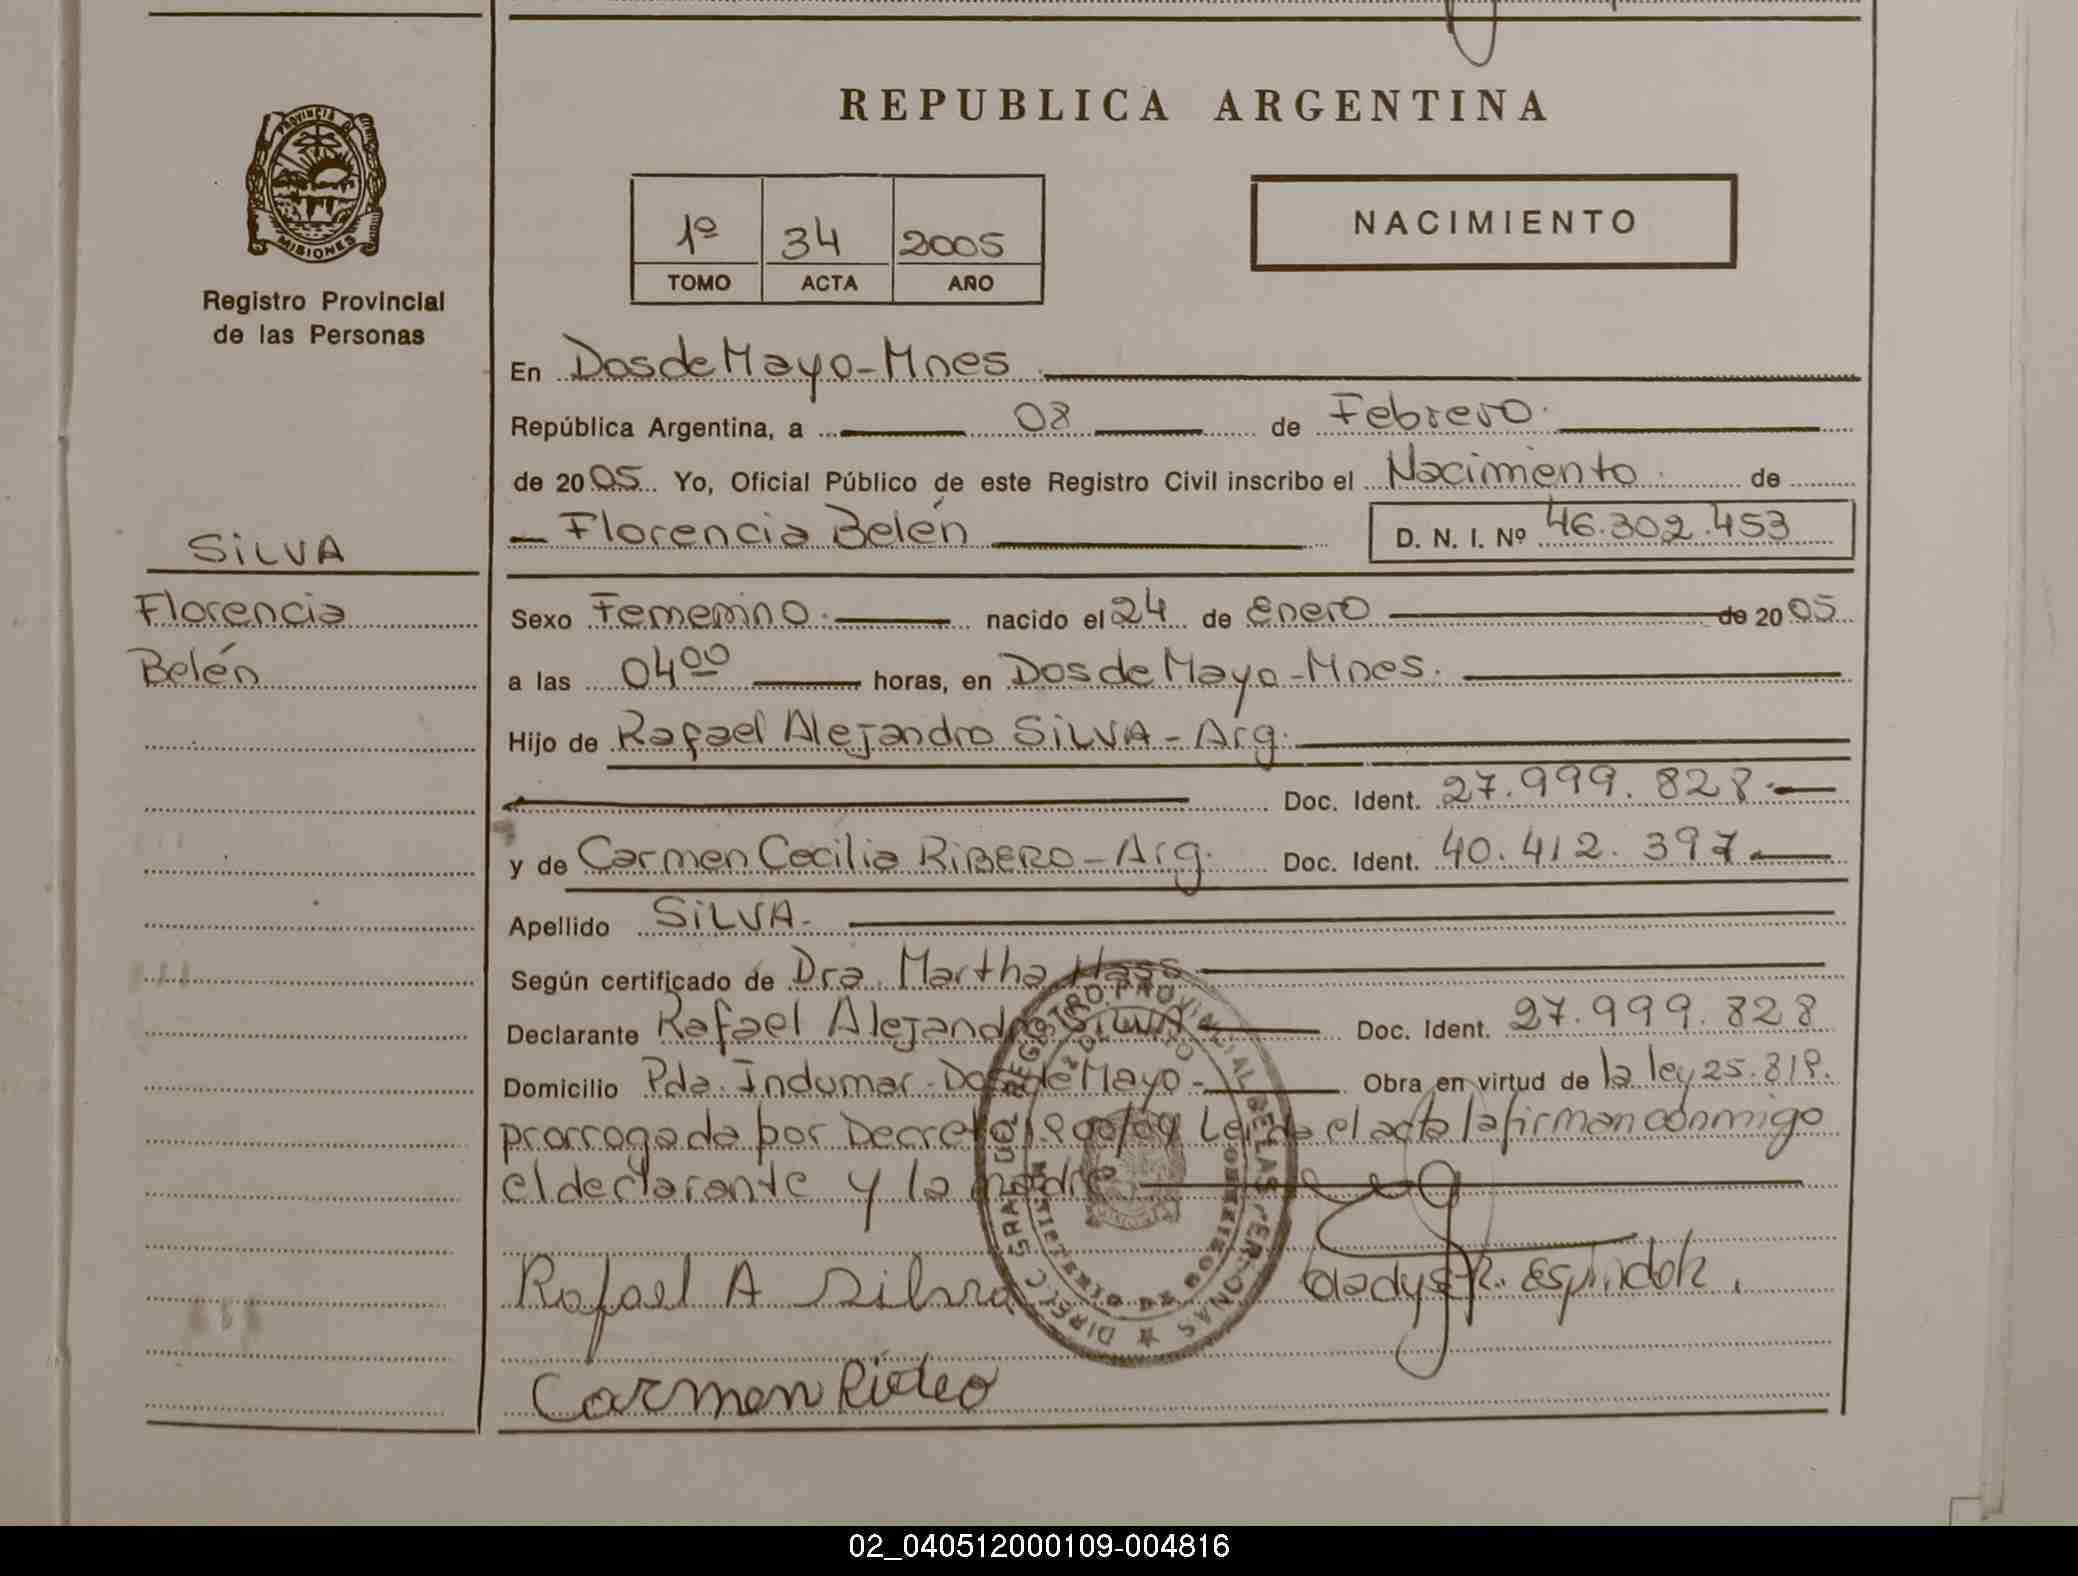 REPUBLICA ARGENTINA
PROVINCIA DE
MISIONES
Registro Provincial
de las Personas
1º 34 2005
TOMO ACTA AÑO
NACIMIENTO
En Dos de Mayo-Mnes
República Argentina, a 08 de Febrero.
de 2005 Yo, Oficial Público de este Registro Civil inscribo el Nacimiento. de
Florencia Belén D. N. I. Nº 46.302.453
SILVA
Florencia
Belén
Sexo Femenino. nacido el 24 de Enero de 2005
a las 04⁰⁰ horas, en Dos de Mayo-Mnes.
Hijo de Rafael Alejandro SILVA - Arg.
Doc. Ident. 27.999.828.
y de Carmen Cecilia RIBERO - Arg. Doc. Ident. 40.412.397
Apellido SILVA.
Según certificado de Dra. Martha Haas
Declarante Rafael Alejandro SILVA Doc. Ident. 27.999.828
Domicilio Pda. Indumar-Dos de Mayo- Obra en virtud de la ley 25.819.
prorrogada por Decreto Leída el acta la firman conmigo
el declarante y la madre
Rafael A Silva
Gladys R. Espindola.
Carmen Ribero
02_040512000109-004816